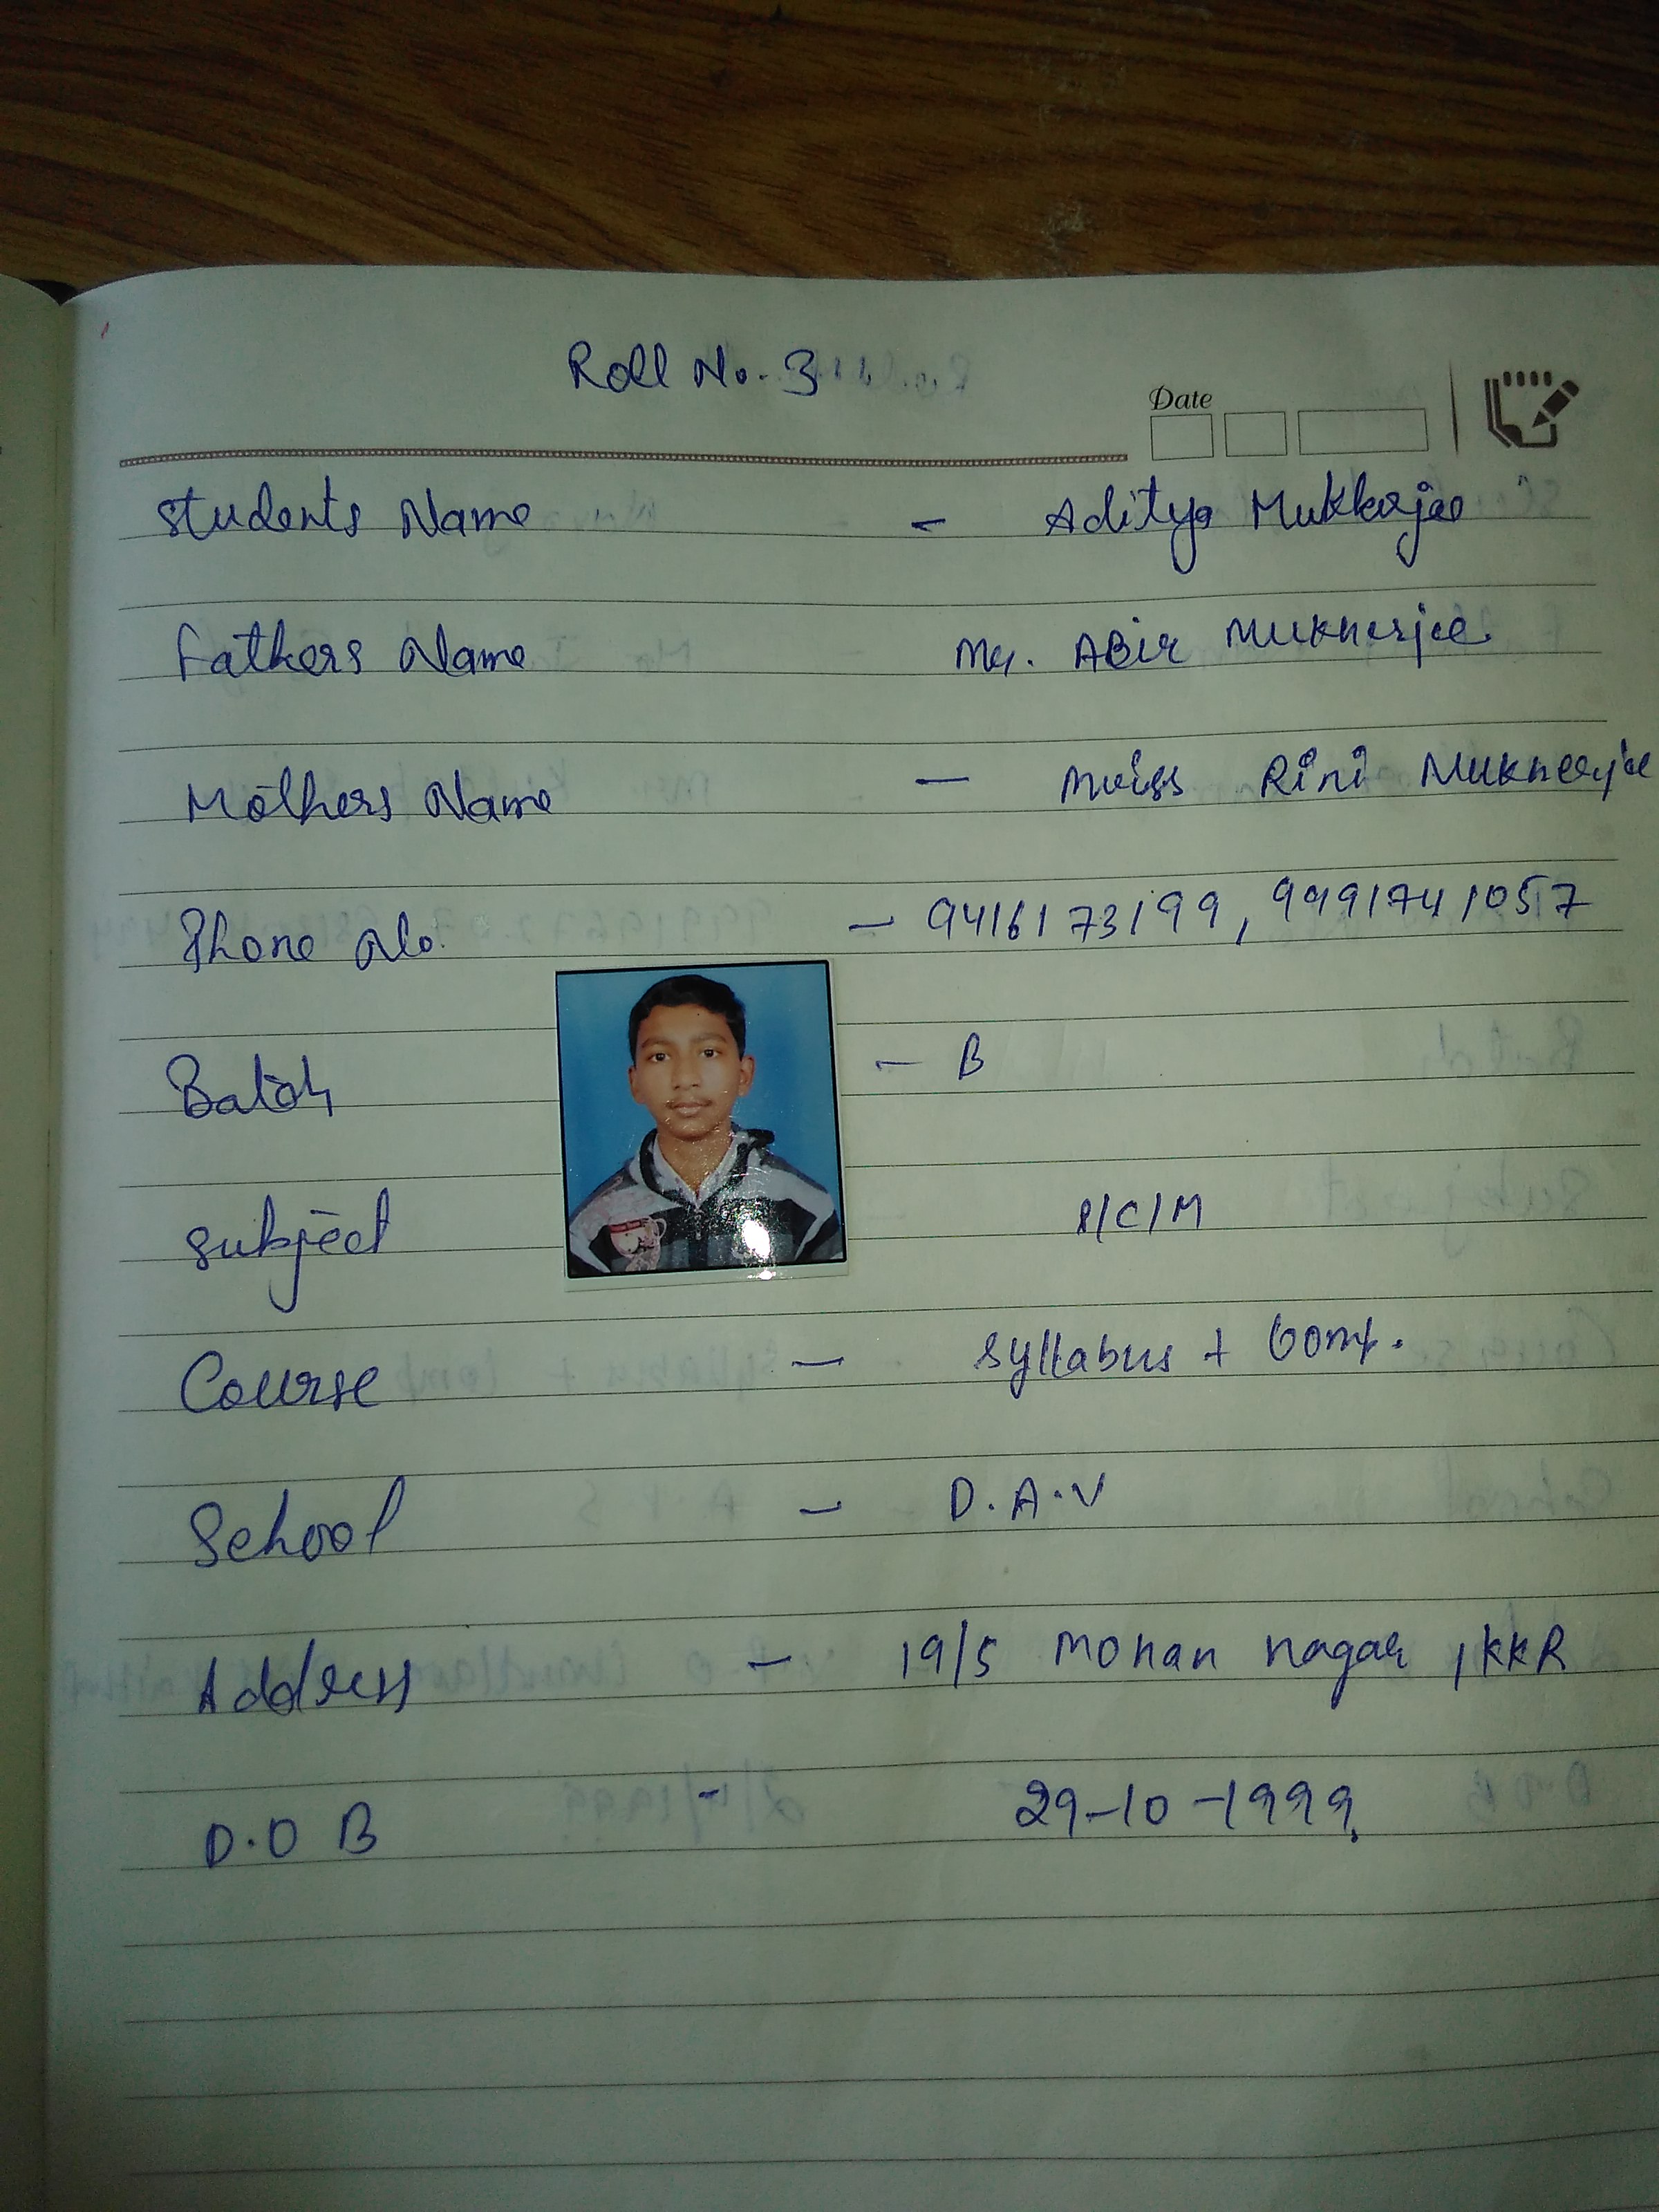 Roll No. 3
Date
Students Name - Aditya Mukherjee
Fathers Name Mr. Abir Mukherjee
Mothers Name - Rini Mukherjee
Phone No. - 9416173199, 9991741057
Batch - B
Subject P/C/M
Course - Syllabus + Comp.
School - D.A.V
Address - 19/5 Mohan nagar, KKR
D.O B - 29-10-1999.